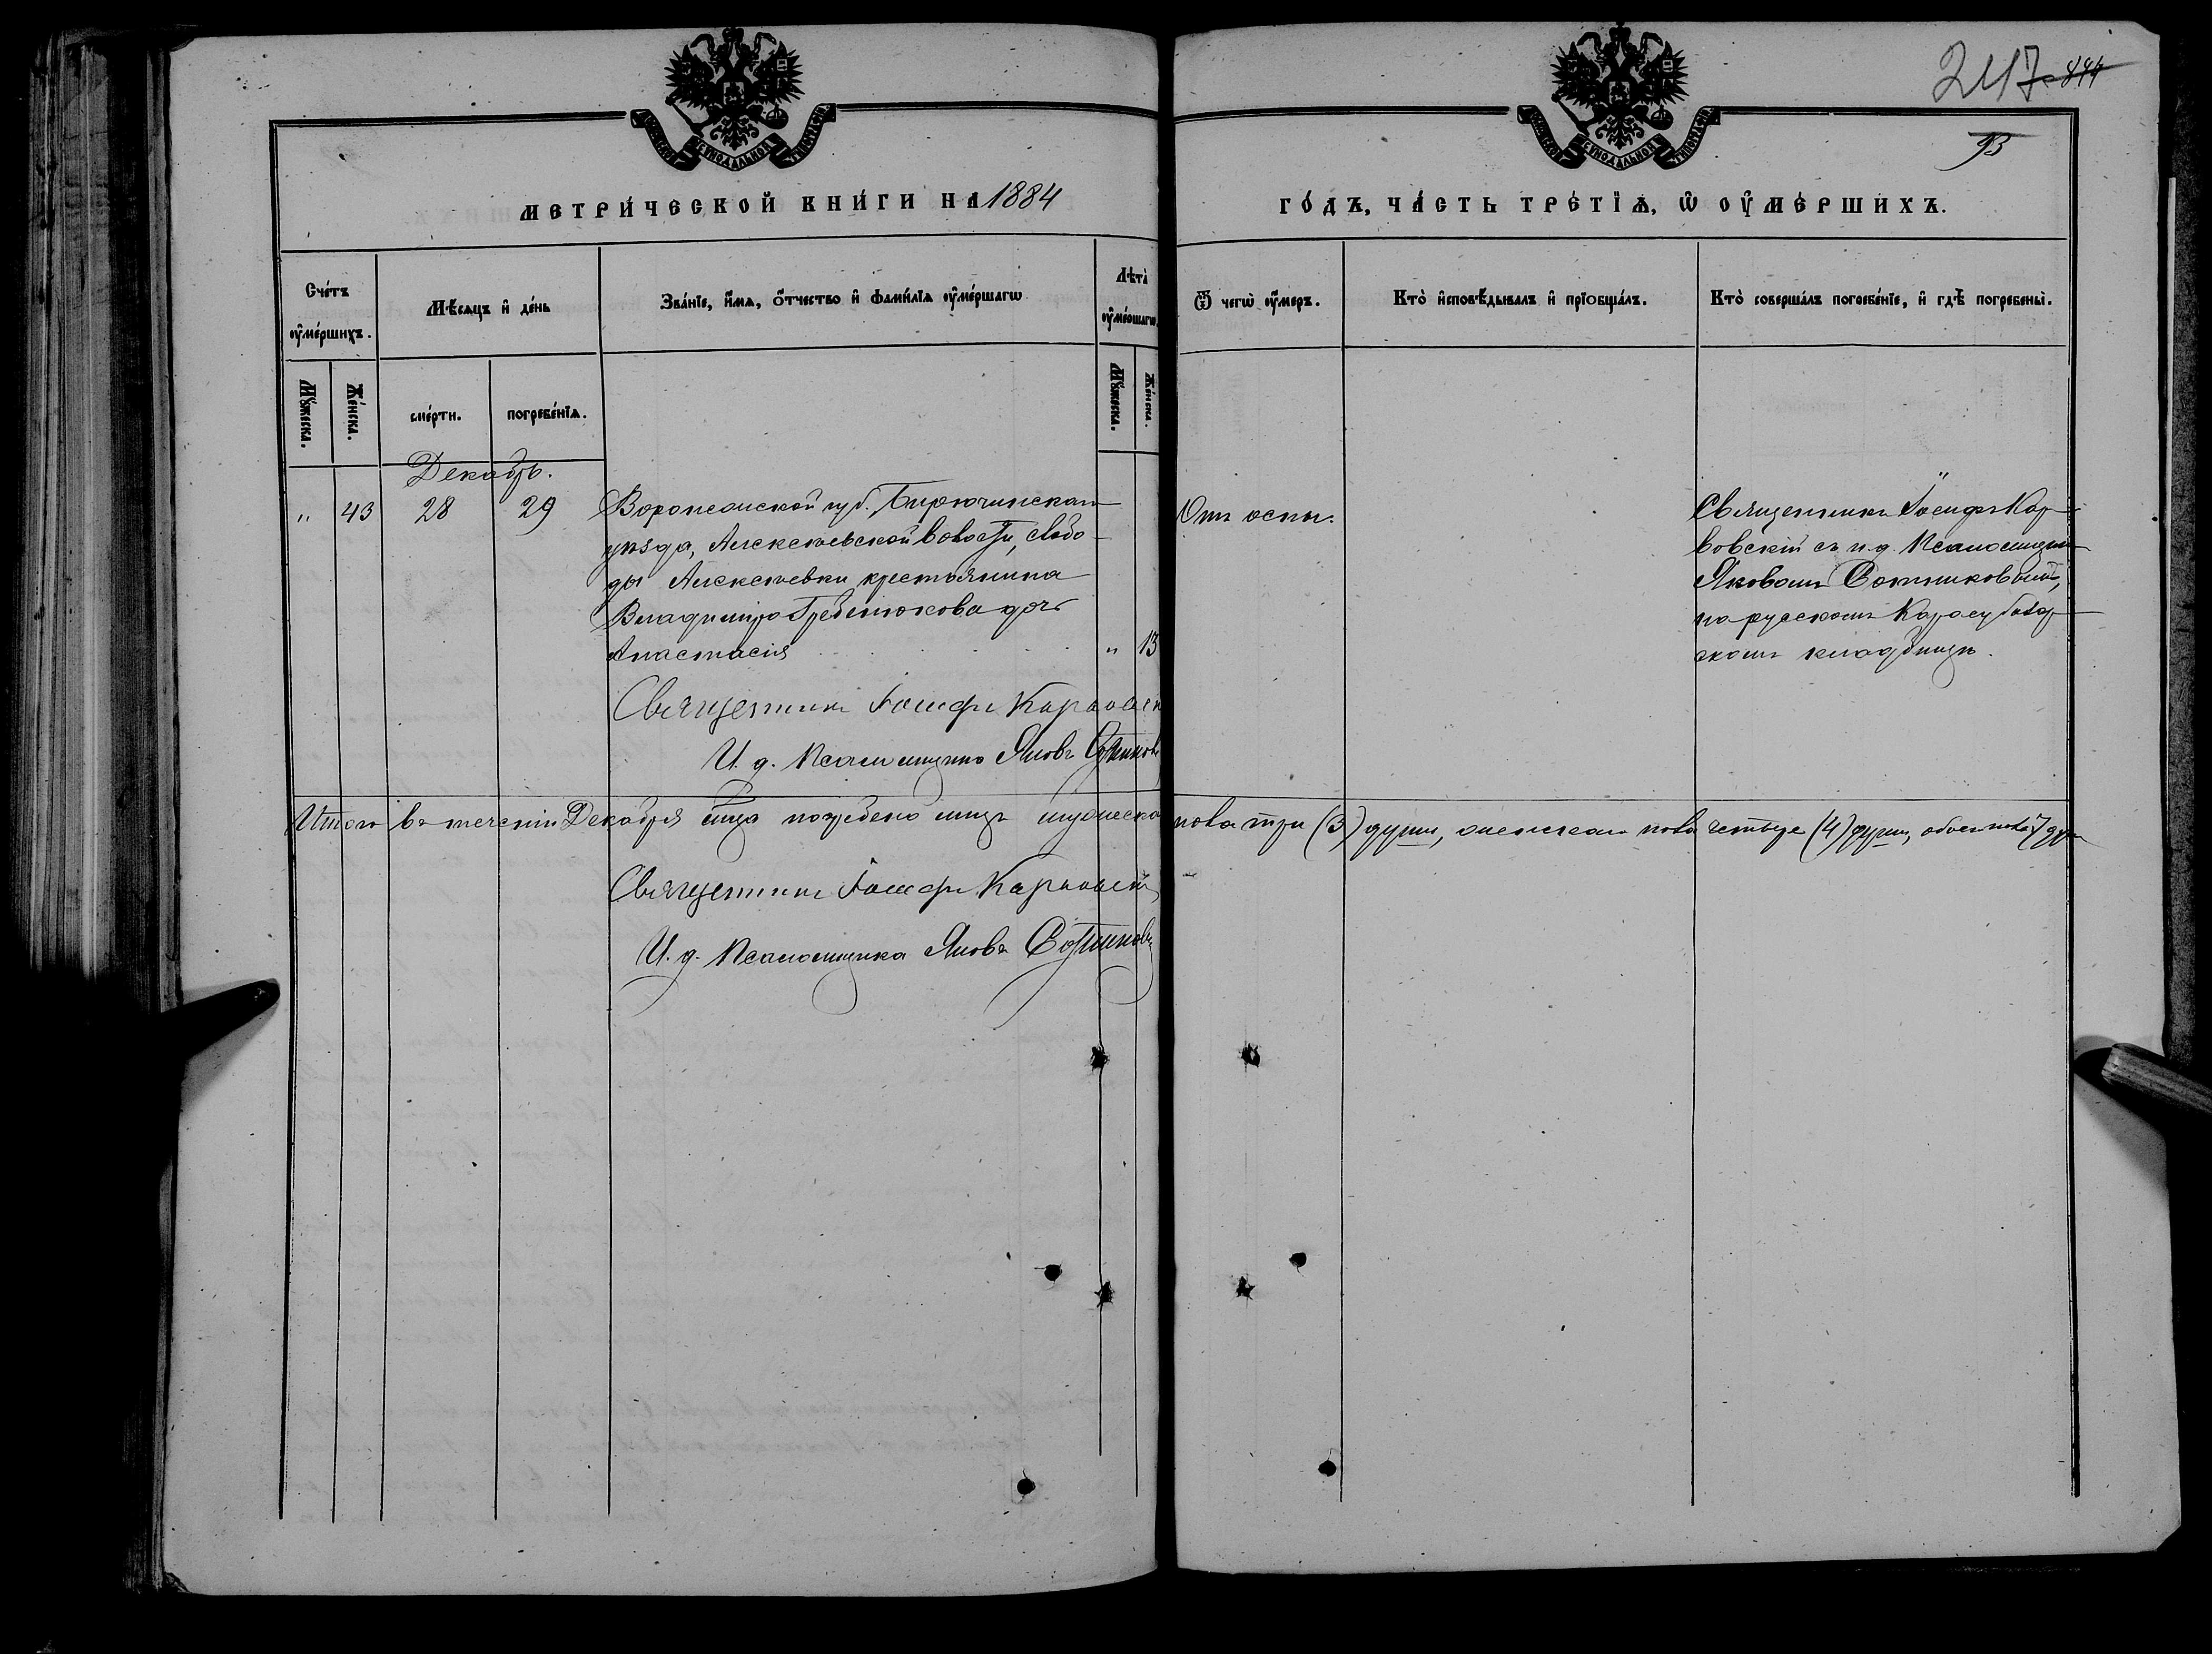 247 444
93
МЕТРИ́ЧЕСКОЙ КНИ́ГИ НА 1884
ГО́ДЪ, ЧА́СТЬ ТРЕ́ТІѦ, Ѡ ОУ҆МЕ́РШИХЪ.
Сче́тъ оу҆ме́ршихъ.
Мѣ́сяцъ и҆ де́нь
Зва́нїе, и҆́мѧ, ѻ҆́тчество и҆ фами́лїѧ оу҆ме́ршагѡ
Лѣта̀ оу҆ме́ршагѡ.
Ѿ чегѡ̀ оу҆́меръ.
Кто̀ и҆сповѣ́дывалъ и҆ прїобща́лъ.
Кто̀ соверша́лъ погребе́нїе, и҆ гдѣ̀ погребены̀.
Мꙋ́жеска.
Же́нска.
сме́рти.
погребе́нїѧ.
Мꙋ́жеска.
Же́нска.
Декабрь.
" 43 28 29 Воронежской губ. Бирючинскаго
уѣзда, Алексѣевской волости, слобо-
ды Алексѣевки крестьянина
Владиміра Гребенюкова дочь
Анастасія " 13
Отъ оспы.
Священникъ Іосифъ Кар-
повскій съ и.д. Псаломщика
Яковомъ Сотниковымъ,
на русскомъ Карасубазар-
скомъ кладбищѣ.
Священникъ Іосифъ Карповск
И. д. Псаломщика Яковъ Сотников
Итого въ теченіи Декабря мѣсяца погребено лицъ мужеска пола три (3) души, женскаго пола четыре (4) души, обоего пола 7 душ
Священникъ Іосифъ Карповскій
И. д. Псаломщика Яковъ Сотниковъ